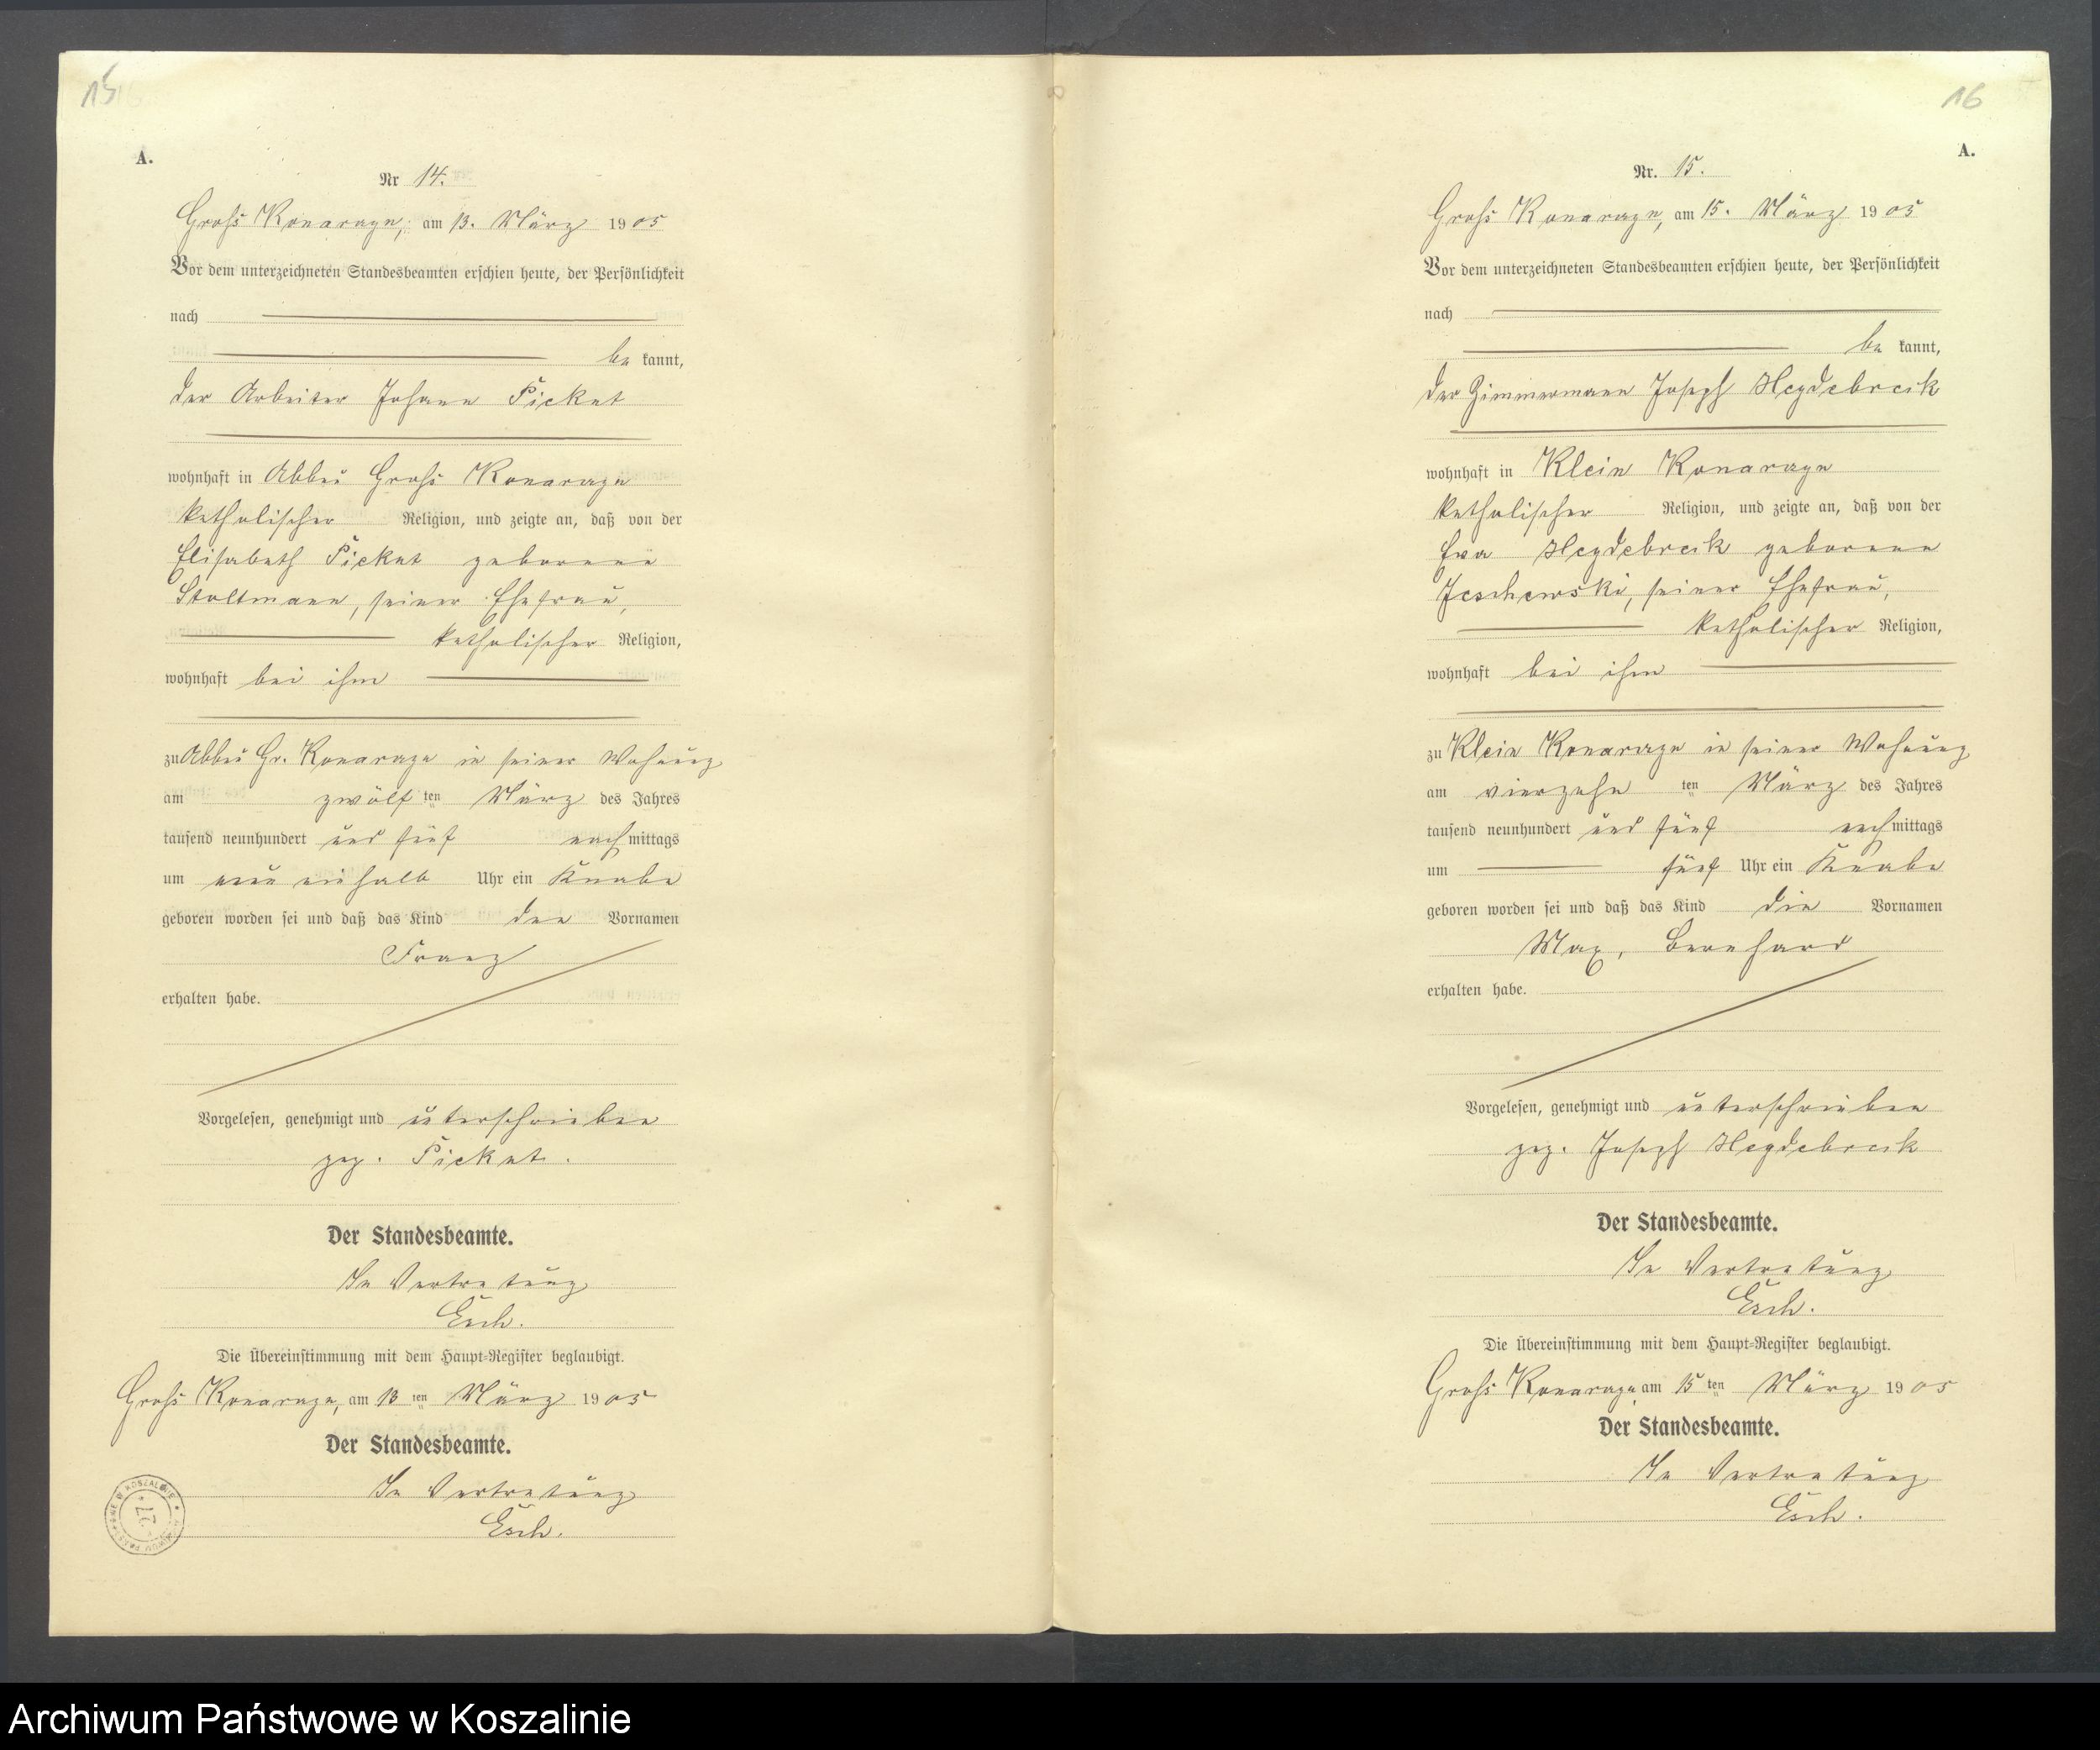 15
A.
Nr 14.
Gross Konarczyn, am 13. März 1905
Vor dem unterzeichneten Standesbeamten erschien heute, der Persönlichkeit
nach
be kannt,
der Arbeiter Johann Pickat
wohnhaft in Abbau Gross Konarczyn
katholischer Religion, und zeigte an, daß von der
Elisabeth Pickat geborenen
Stoltmann, seiner Ehefrau,
katholischer Religion,
wohnhaft bei ihm
zu Abbau Gr. Konarczyn in seiner Wohnung
am zwölf ten März des Jahres
tausend neunhundert und fünf nach mittags
um neun einhalb Uhr ein Knabe
geboren worden sei und daß das Kind den Vornamen
Franz
erhalten habe.
Vorgelesen, genehmigt und unterschrieben
gez. Pickat.
Der Standesbeamte.
In Vertretung
Esch.
Die Übereinstimmung mit dem Haupt-Register beglaubigt.
Gross Konarczyn, am 13 ten März 1905
Der Standesbeamte.
In Vertretung
Esch.
W KOSZALINIE
27
16
A.
Nr. 15.
Gross Konarczyn, am 15. März 1905
Vor dem unterzeichneten Standesbeamten erschien heute, der Persönlichkeit
nach
be kannt,
der Zimmermann Joseph Heydebreck
wohnhaft in Klein Konarczyn
katholischer Religion, und zeigte an, daß von der
Eva Heydebreck geborenen
Jeschewski, seiner Ehefrau,
katholischer Religion,
wohnhaft bei ihm
zu Klein Konarczyn in seiner Wohnung
am vierzehn ten März des Jahres
tausend neunhundert und fünf nach mittags
um fünf Uhr ein Knabe
geboren worden sei und daß das Kind die Vornamen
Max, Bernhard
erhalten habe.
Vorgelesen, genehmigt und unterschrieben
gez. Joseph Heydebreck
Der Standesbeamte.
In Vertretung
Esch.
Die Übereinstimmung mit dem Haupt-Register beglaubigt.
Gross Konarczyn, am 15 ten März 1905
Der Standesbeamte.
In Vertretung
Esch.
Archiwum Państwowe w Koszalinie